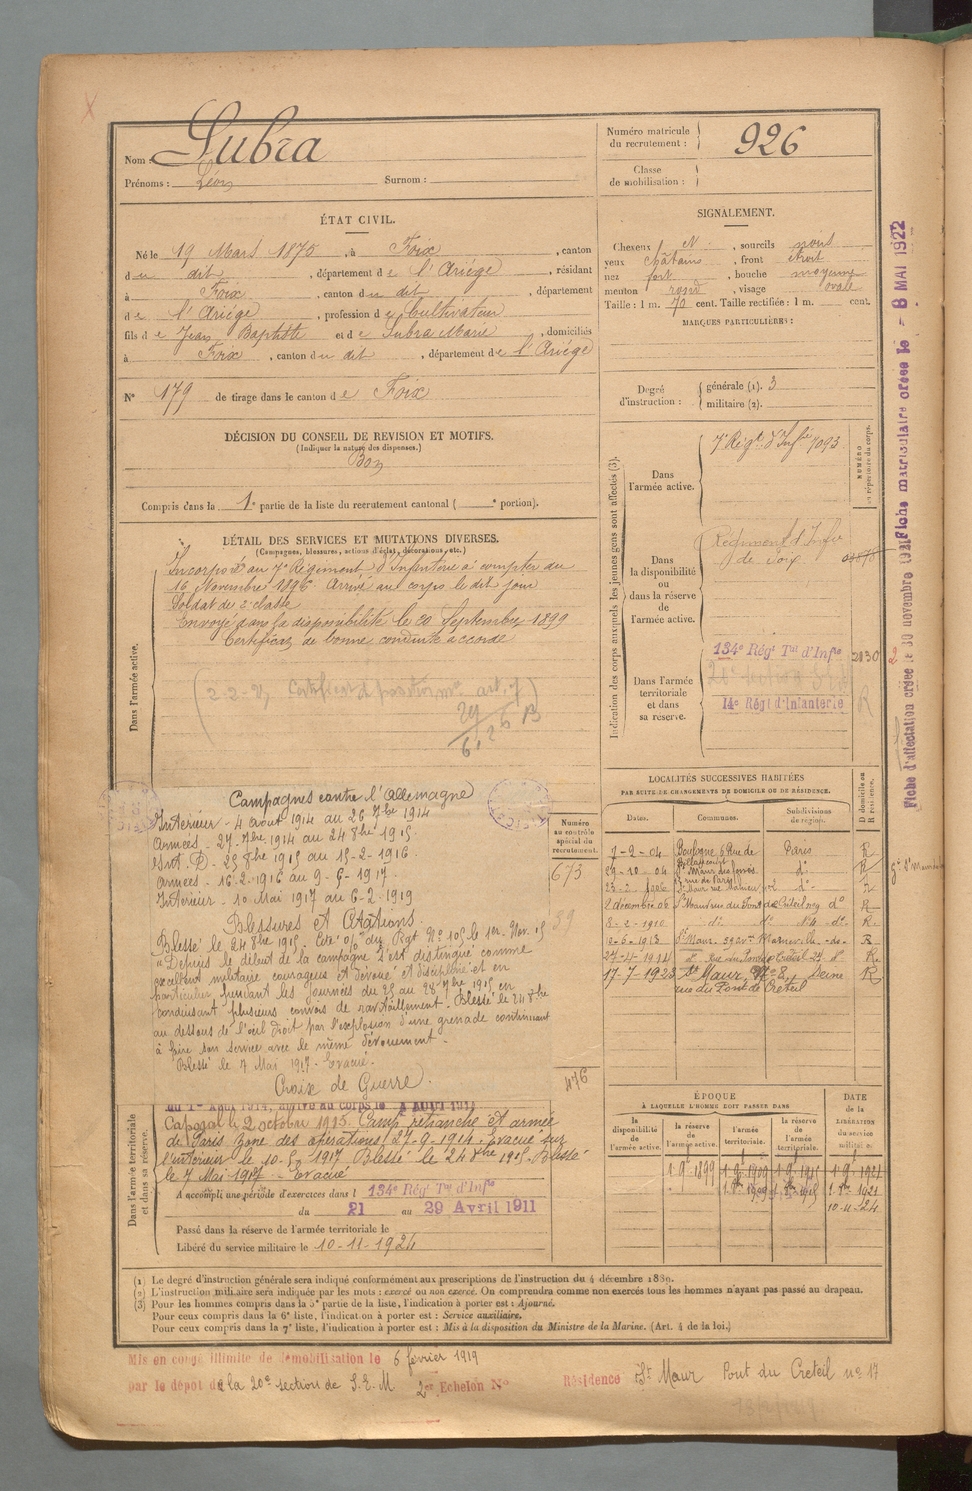 Nom : Subra
Prénoms : Léon Surnom :
Numéro matricule du recrutement : 926
Classe de mobilisation :
ÉTAT CIVIL.
Né le 19 Mars 1875, à Foix, canton
du dit, département de l'Ariège, résidant
à Foix, canton du dit, département
de l'Ariège, profession de Cultivateur
fils de Jean Baptiste et de Subra Marie, domiciliés
à Foix, canton du dit, département de l'Ariège
N° 179 de tirage dans le canton de Foix
DÉCISION DU CONSEIL DE REVISION ET MOTIFS.
(Indiquer la nature des dispenses.)
Bon
Compris dans la 1e partie de la liste du recrutement cantonal ( e portion).
SIGNALEMENT.
Cheveux N., sourcils noirs
yeux châtains, front étroit
nez fort, bouche moyenne
menton rond, visage ovale
Taille : 1 m. 70 cent. Taille rectifiée : 1 m. cent.
MARQUES PARTICULIÈRES :
Degré d'instruction : générale (1). 3
militaire (2).
DÉTAIL DES SERVICES ET MUTATIONS DIVERSES.
(Campagnes, blessures, actions d'éclat, décorations, etc.)
Dans l'armée active.
Incorporé au 7e Régiment d'Infanterie à compter du
16 Novembre 1896. Arrivé au corps le dit jour
Soldat de 2e classe
Envoyé dans la disponibilité le 20 Septembre 1899
Certificat de bonne conduite accordé
Campagnes contre l'Allemagne
Intérieur - 4 août 1914 au 26 7bre 1914
Armées - 27 7bre 1914 au 24 8bre 1915
Int. D - 25 8bre 1915 au 15-2-1916
Armées - 16-2-1916 au 9-5-1917
Intérieur - 10 Mai 1917 au 6-2-1919
Blessures et Citations.
Blessé le 24 8bre 1915. Cité % du Rgt N° 105 le 1er Nov. 15
"Depuis le début de la campagne s'est distingué comme
excellent militaire courageux et dévoué et discipliné et en
particulier pendant les journées du 25 au 28 7bre 1915 en
conduisant plusieurs convois de ravitaillement. Blessé le 24 8bre
au dessous de l'œil droit par l'explosion d'une grenade continuant
à faire son service avec le même dévouement.
Blessé le 7 Mai 1917 - Evacué.
Croix de Guerre.
Numéro au contrôle spécial du recrutement.
673
89
476
Dans l'armée territoriale et dans sa réserve.
du 1er Août 1914, arrivé au corps le 4 Août 1914
Caporal le 2 octobre 1915. Camp retranché et armée
de Paris zone des opérations 27-9-1914. Evacué sur
l'intérieur le 10-5-1917 Blessé le 24 8bre 1915. Blessé
le 7 Mai 1917 - Evacué
A accompli une période d'exercices dans l 134e Régt Tal d'Infie
du 21 au 29 Avril 1911
Passé dans la réserve de l'armée territoriale le
Libéré du service militaire le 10-11-1924
Indication des corps auxquels les jeunes gens sont affectés (3).
NUMÉRO au répertoire du corps.
Dans l'armée active.
7e Régt d'Infie 7093
Dans la disponibilité ou dans la réserve de l'armée active.
Régiment d'Infie de Foix
Dans l'armée territoriale et dans sa réserve.
134e Régt Tal d'Infie 2830
14e Régt d'Infanterie
R
LOCALITÉS SUCCESSIVES HABITÉES
PAR SUITE DE CHANGEMENTS DE DOMICILE OU DE RÉSIDENCE.
Dates. Communes. Subdivisions de région. D domicile ou R résidence.
7-9-04 Boulogne 6 Rue de Paris R
29-10-04 St Maur des fossés do R
23-2-1906 St Maur do R
2 décembre 06 St Maur rue du Pont de Créteil do R
8-2-1910 do do do R.
10-6-1913 St Maur -do- R
27-4-1914 do rue du Pont de Créteil 27 do R.
17-7-1923 St Maur, Seine R
rue du Pont de Créteil
ÉPOQUE
À LAQUELLE L'HOMME DOIT PASSER DANS
la disponibilité de l'armée active. la réserve de l'armée active. l'armée territoriale. la réserve de l'armée territoriale.
DATE de la LIBÉRATION du service militaire.
1-9-1899 1-9-1909 1-9-1915 1-9-1921
1-8bre 1909 1-8bre 1915 1-8bre 1921
10-11-24
(1) Le degré d'instruction générale sera indiqué conformément aux prescriptions de l'instruction du 4 décembre 1889.
(2) L'instruction militaire sera indiquée par les mots : exercé ou non exercé. On comprendra comme non exercés tous les hommes n'ayant pas passé au drapeau.
(3) Pour les hommes compris dans la 5e partie de la liste, l'indication à porter est : Ajourné.
Pour ceux compris dans la 6e liste, l'indication à porter est : Service auxiliaire.
Pour ceux compris dans la 7e liste, l'indication à porter est : Mis à la disposition du Ministre de la Marine. (Art. 4 de la loi.)
Mis en congé illimité de démobilisation le 6 février 1919
par le dépôt de la 20e section de S.E.M 2e Echelon N° Résidence St Maur Pont du Créteil no 17
Fiche matriculaire créée le - 8 MAI 1922
Fiche d'affectation créée le 30 novembre 1921